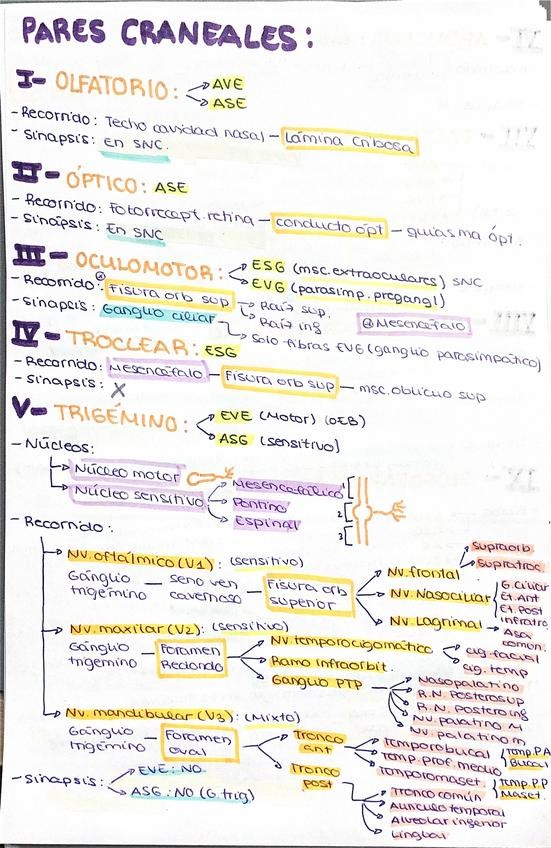 PARES CRANEALES:
I- OLFATORIO: → AVE
→ ASE
- Recorrido: Techo cavidad nasal - Lámina Cribosa
- Sinapsis: En SNC.
II- ÓPTICO: ASE
- Recorrido: Fotorrecapt. retina - conducto ópt - quiasma ópt.
- Sinapsis: En SNC
III- OCULOMOTOR: → ESG (msc. extraoculares) SNC
→ EVG (parasimp. pregangl)
- Recorrido: Fisura orb sup → Raíz sup.
→ Raíz ing
Mesencéfalo
- Sinapsis: Ganglio ciliar → Solo fibras EVG (ganglio parasimpático)
IV- TROCLEAR: ESG
- Recorrido: Mesencéfalo - Fisura orb sup - msc. oblicuo sup
- Sinapsis: X
V- TRIGÉMINO: → EVE (Motor) (OEB)
→ ASG (sensitivo)
- Núcleos:
→ Núcleo motor
→ Núcleo sensitivo → Mesencefálico 1
→ Pontino 2
→ Espinal 3
- Recorrido:
→ Nv. oftálmico (V1): (sensitivo)
Gánglio trigémino - seno ven cavernoso - Fisura orb superior
→ Nv. frontal → Supraorb.
→ Supratroc.
→ Nv. Nasociliar G. Ciliar
Et. Ant
Et. Post
Infratro.
→ Nv. Lagrimal → Asa comun.
→ Nv. maxilar (V2): (sensitivo)
Gánglio trigémino - Foramen Redondo
→ Nv. temporocigomático → cig. facial
→ cig. temp
→ Ramo infraorbit.
→ Ganglio PTP → Nasopalatino
→ R.N. Posterosup
→ R.N. posteroing
→ Nv. palatino M
→ Nv. palatino m.
→ Nv. mandibular (V3): (Mixto)
Gánglio trigémino - Foramen oval
→ Tronco ant → Temporobucal Tmp. P.A
Bucal
→ Temp. prof. medio
→ Temporomaset. Tmp. P.P
Maset.
→ Tronco post → Tronco común
→ Aurículo temporal
→ Alveolar ingerior
→ Lingual
- Sinapsis: → EVE: NO
→ ASG: NO (G. trig)